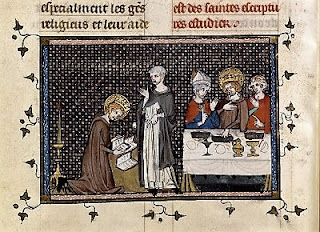 especialment les gẽs
religieus et leur aide
est des saintes escriptu
res estudier.